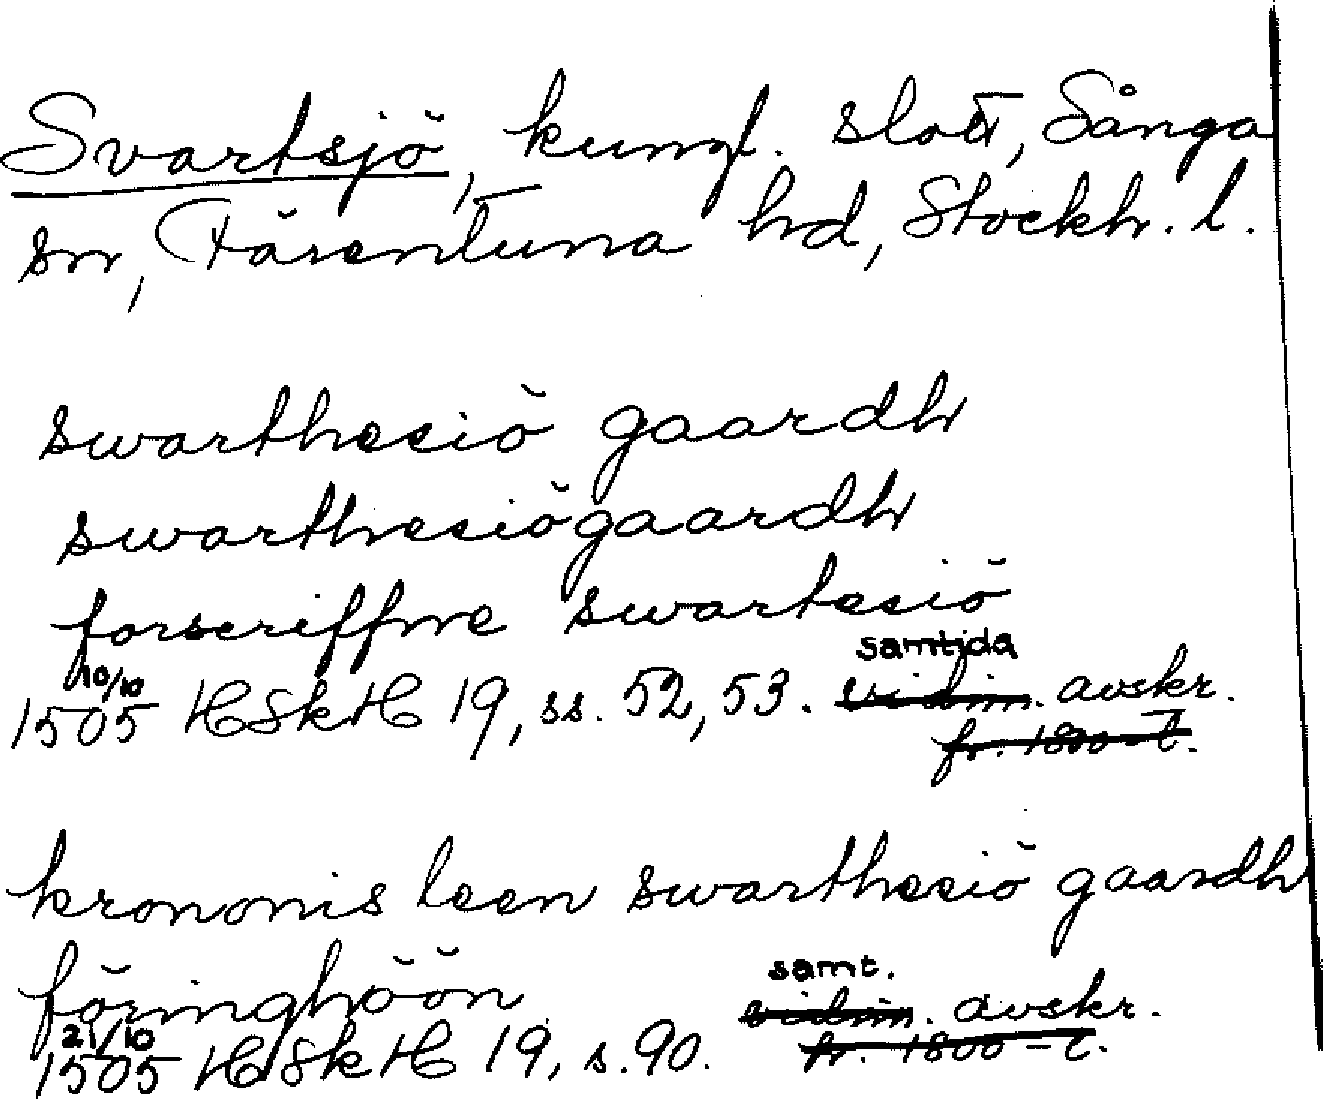 Svartsjö, kungl. slott, Sånga
sn, Färentuna hd, Stockh. l.
swarthesiö gaardh
swarthesiögaardh
forscriffne swartesiö
samtida
10/10
1505 HSkH 19, ss. 52, 53. vidim. avskr.
fr. 1800-t.
krononis leen swarthesiö gaardh
föringhöön
samt.
21/10
1505 HSkH 19, s. 90. vidim. avskr.
fr. 1800-t.